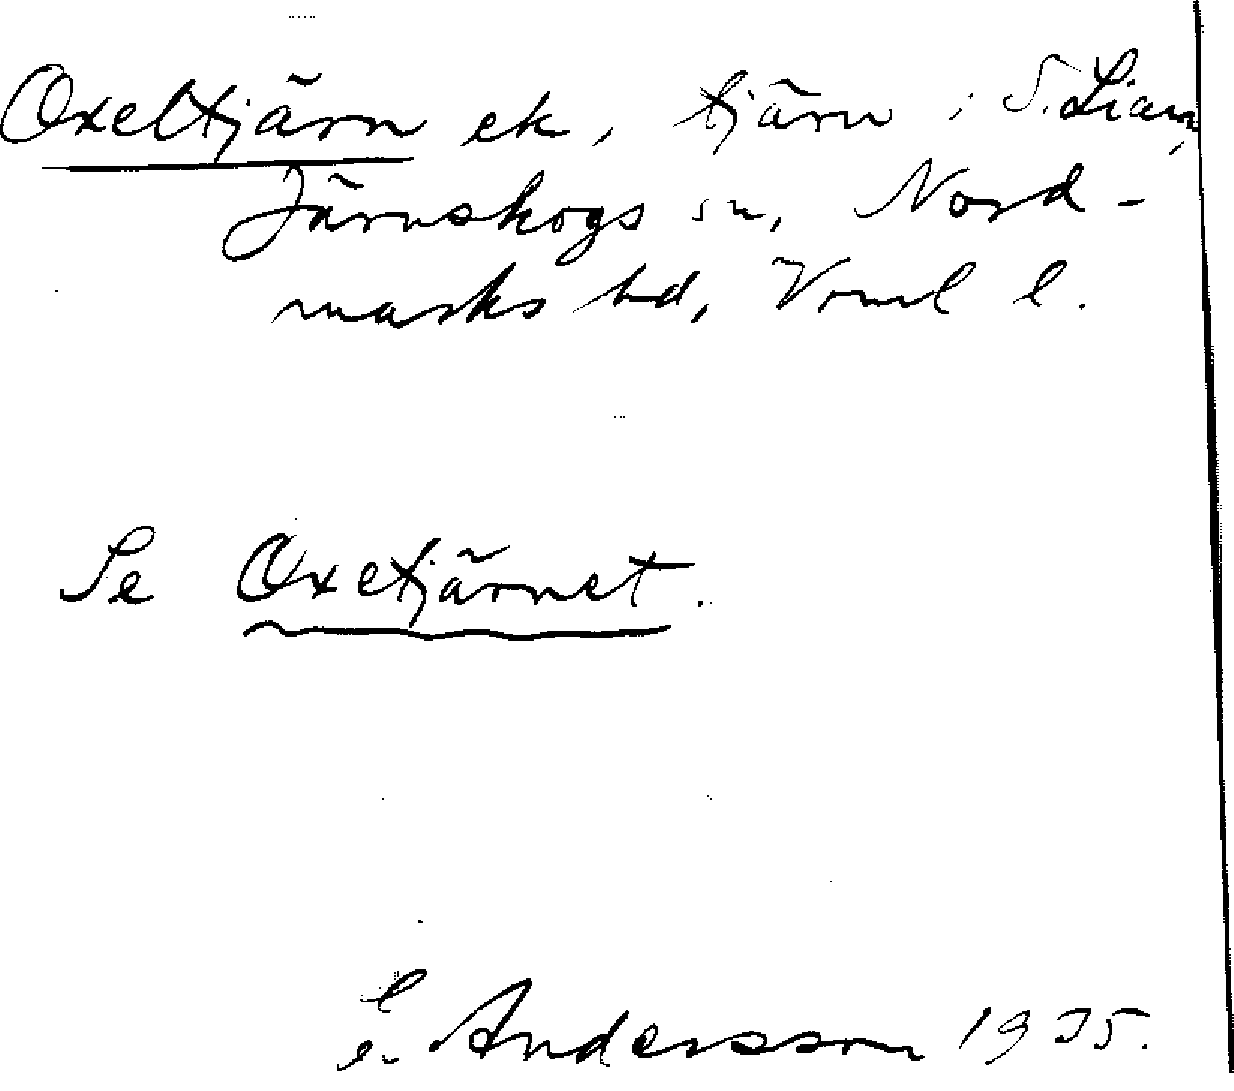 Oxeltjärn ek, tjärn i S. Lian,
Järnskogs sn, Nord-
marks hd, Vrml l.
Se Oxetjärnet.
E. Andersson 1935.